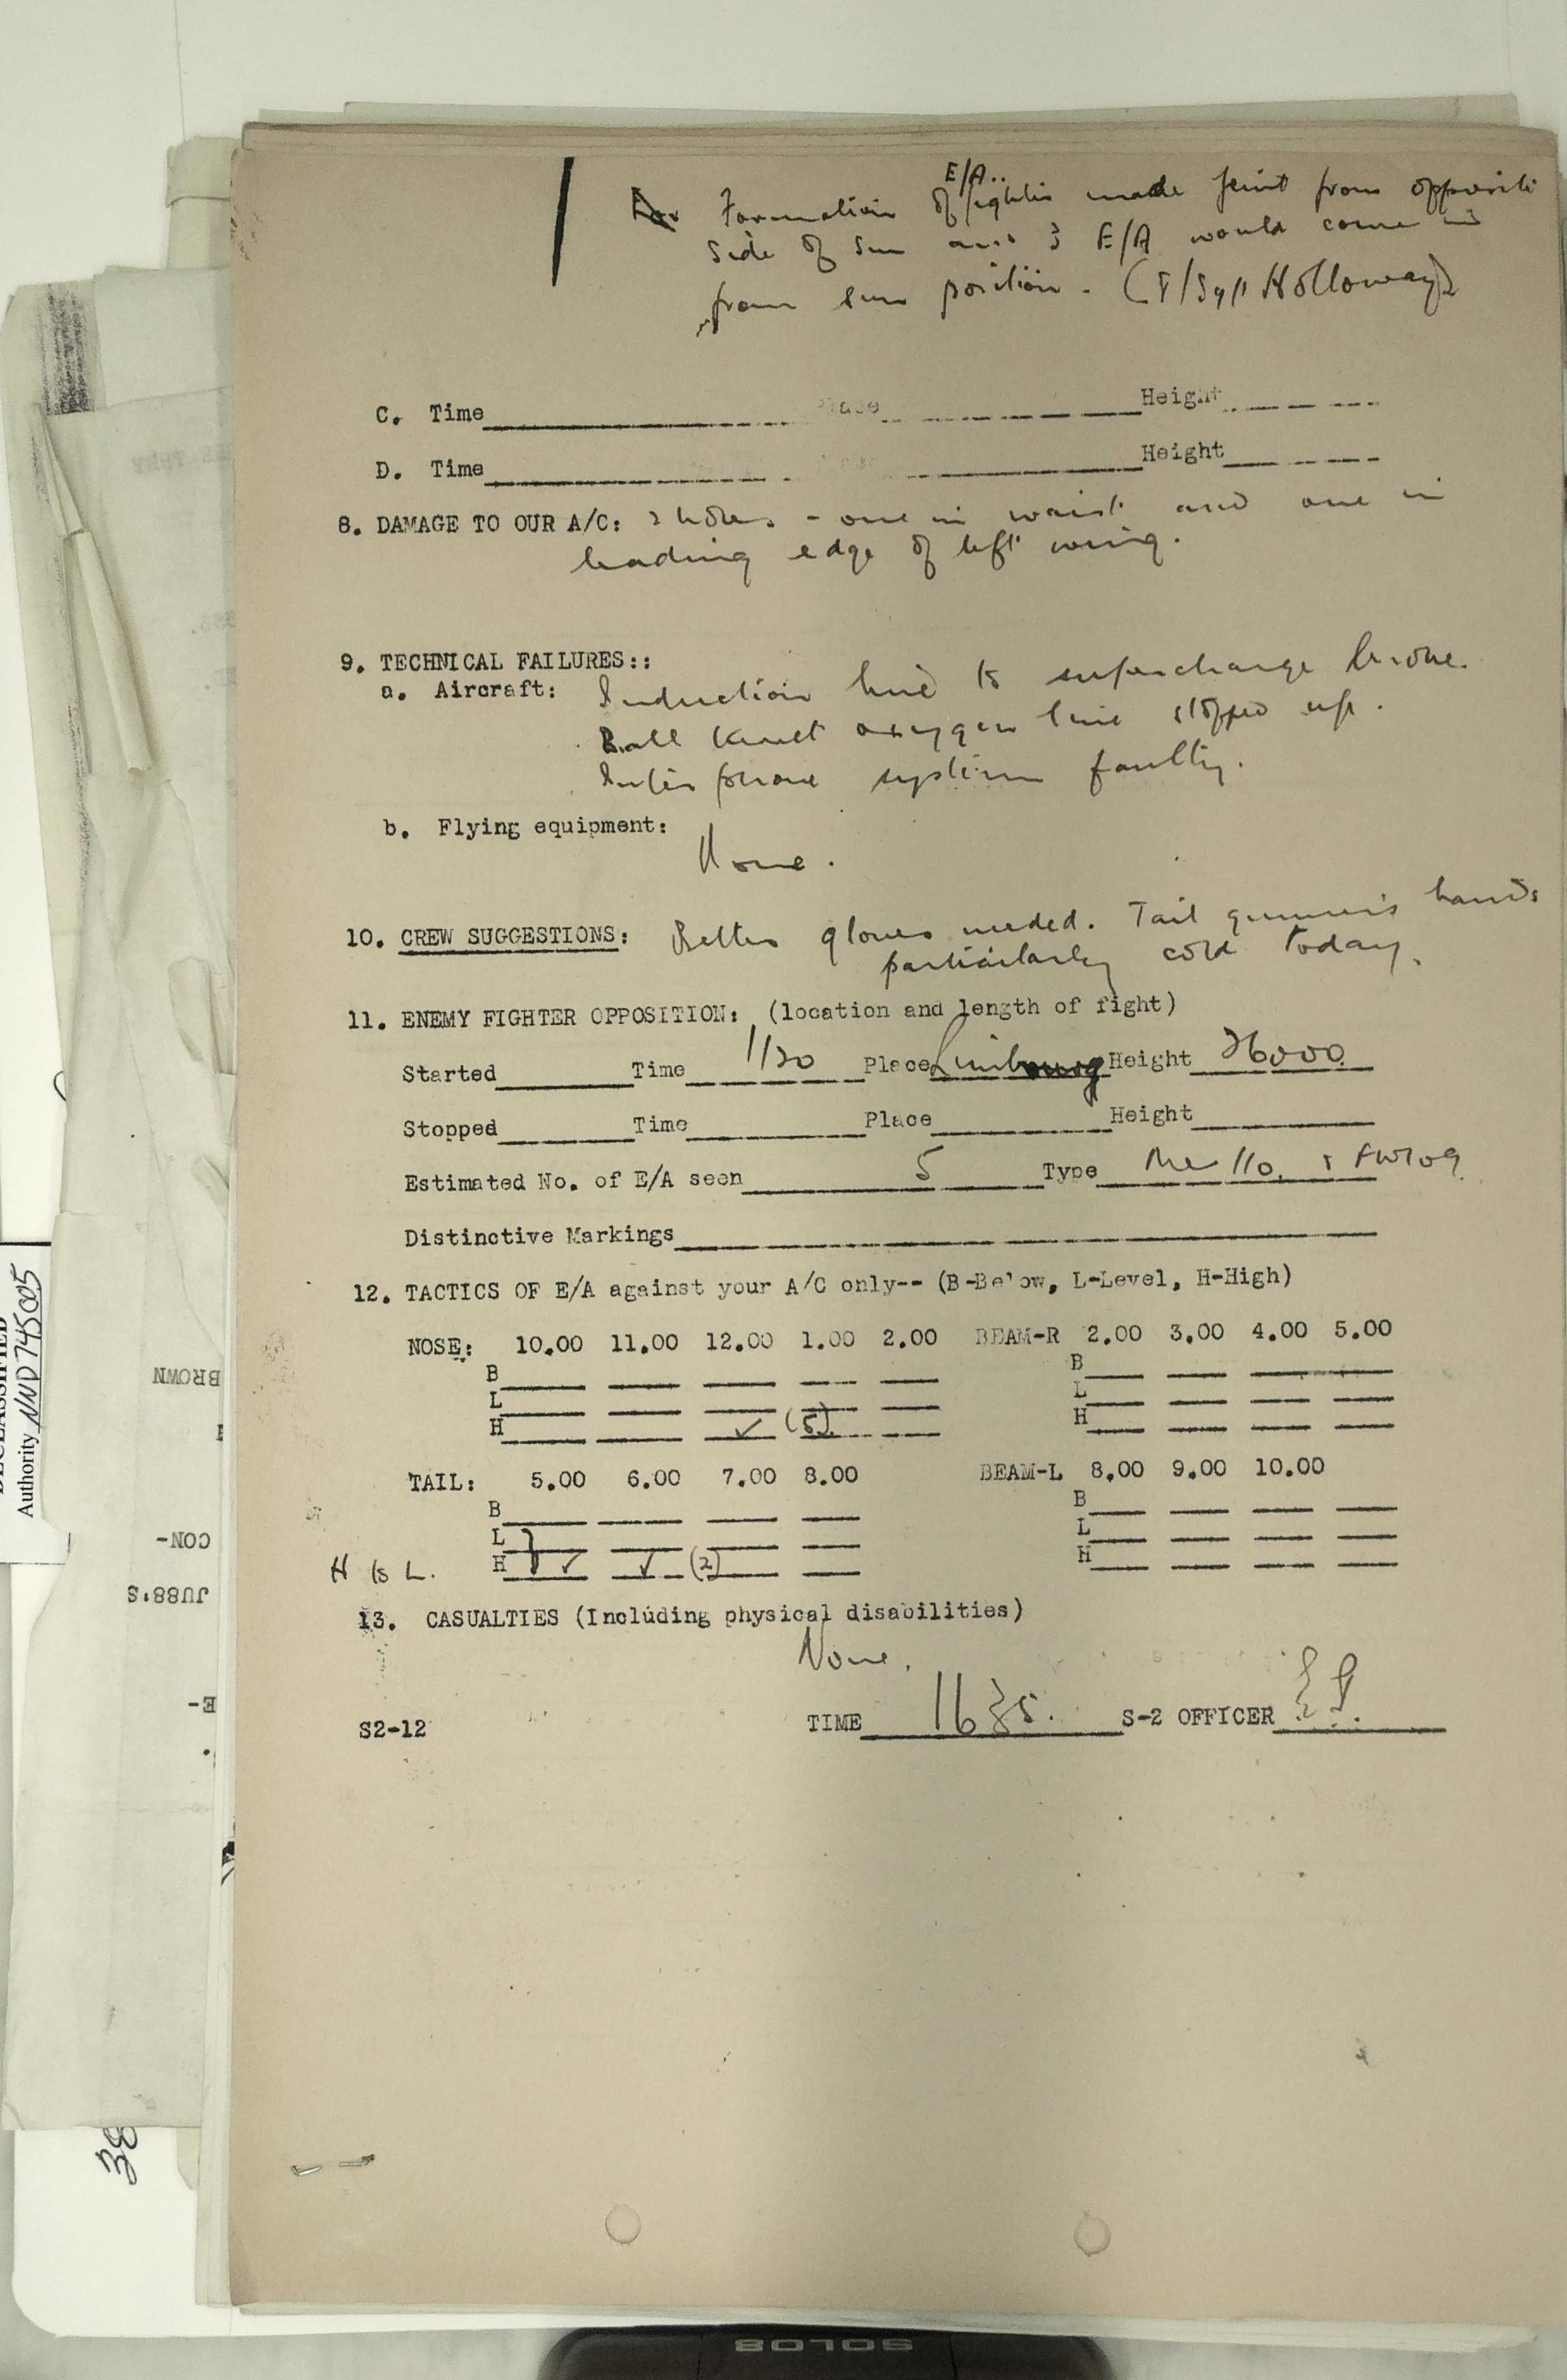 E/A..
Formation of fights made feint from opposite
side of sun and 3 E/A would come in
from sun position. (T/Sgt Holloway)
C. Time Place Height
D. Time Height
8. DAMAGE TO OUR A/C: 2 holes - one in waist and one in
leading edge of left wing.
9. TECHNICAL FAILURES::
a. Aircraft: Induction line to supercharge broke.
Ball turret oxygen line stopped up.
Inter phone system faulty.
b. Flying equipment:
None.
10. CREW SUGGESTIONS: Better gloves needed. Tail gunner's hands
particularly cold today.
11. ENEMY FIGHTER OPPOSITION: (location and length of fight)
Started Time 1120 Place Limbourg Height 26000
Stopped Time Place Height
Estimated No. of E/A seen 5 Type Me 110, & FW109
Distinctive Markings
12. TACTICS OF E/A against your A/C only-- (B-Below, L-Level, H-High)
NOSE: 10.00 11.00 12.00 1.00 2.00 BEAM-R 2.00 3.00 4.00 5.00
B B
L L
H ✓ (5) H
TAIL: 5.00 6.00 7.00 8.00 BEAM-L 8.00 9.00 10.00
B B
L L
H to L. H ✓ ✓ (2) H
13. CASUALTIES (Including physical disabilities)
None.
S2-12 TIME 1635. S-2 OFFICER
DECLASSIFIED
Authority NND 745005
BROWN
CON-
JU88'S
E-
38
SOLO8